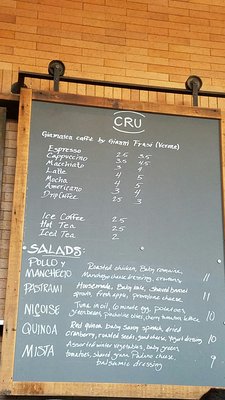 CRU
Giamaica caffè by Gianni Frasi (Verona)
Espresso 2.5 3.5
Cappuccino 3.5 4.5
Macchiato 3 4
Latte 4 5
Mocha 4 5
Americano 3 4
Drip Coffee 2.5 3
Ice Coffee 2.5
Hot Tea 2.5
Iced Tea 2
• SALADS:
POLLO y Roasted chicken, Baby romaine,
MANCHEGO Manchego cheese dressing, croutons 11
PASTRAMI Housemade, Baby kale, shaved brussel
sprouts, fresh apple, provolone cheese 11
NIÇOISE Tuna in oil, 6 minute egg, potatoes,
green beans, cherry tomatoes, lettuce 10
QUINOA Red quinoa, baby spinach, dried
cranberry, roasted seeds, goat cheese, yogurt dressing 10
MISTA Assorted winter vegetables, baby greens,
tomatoes, shaved grana Padano cheese, 9
balsamic dressing